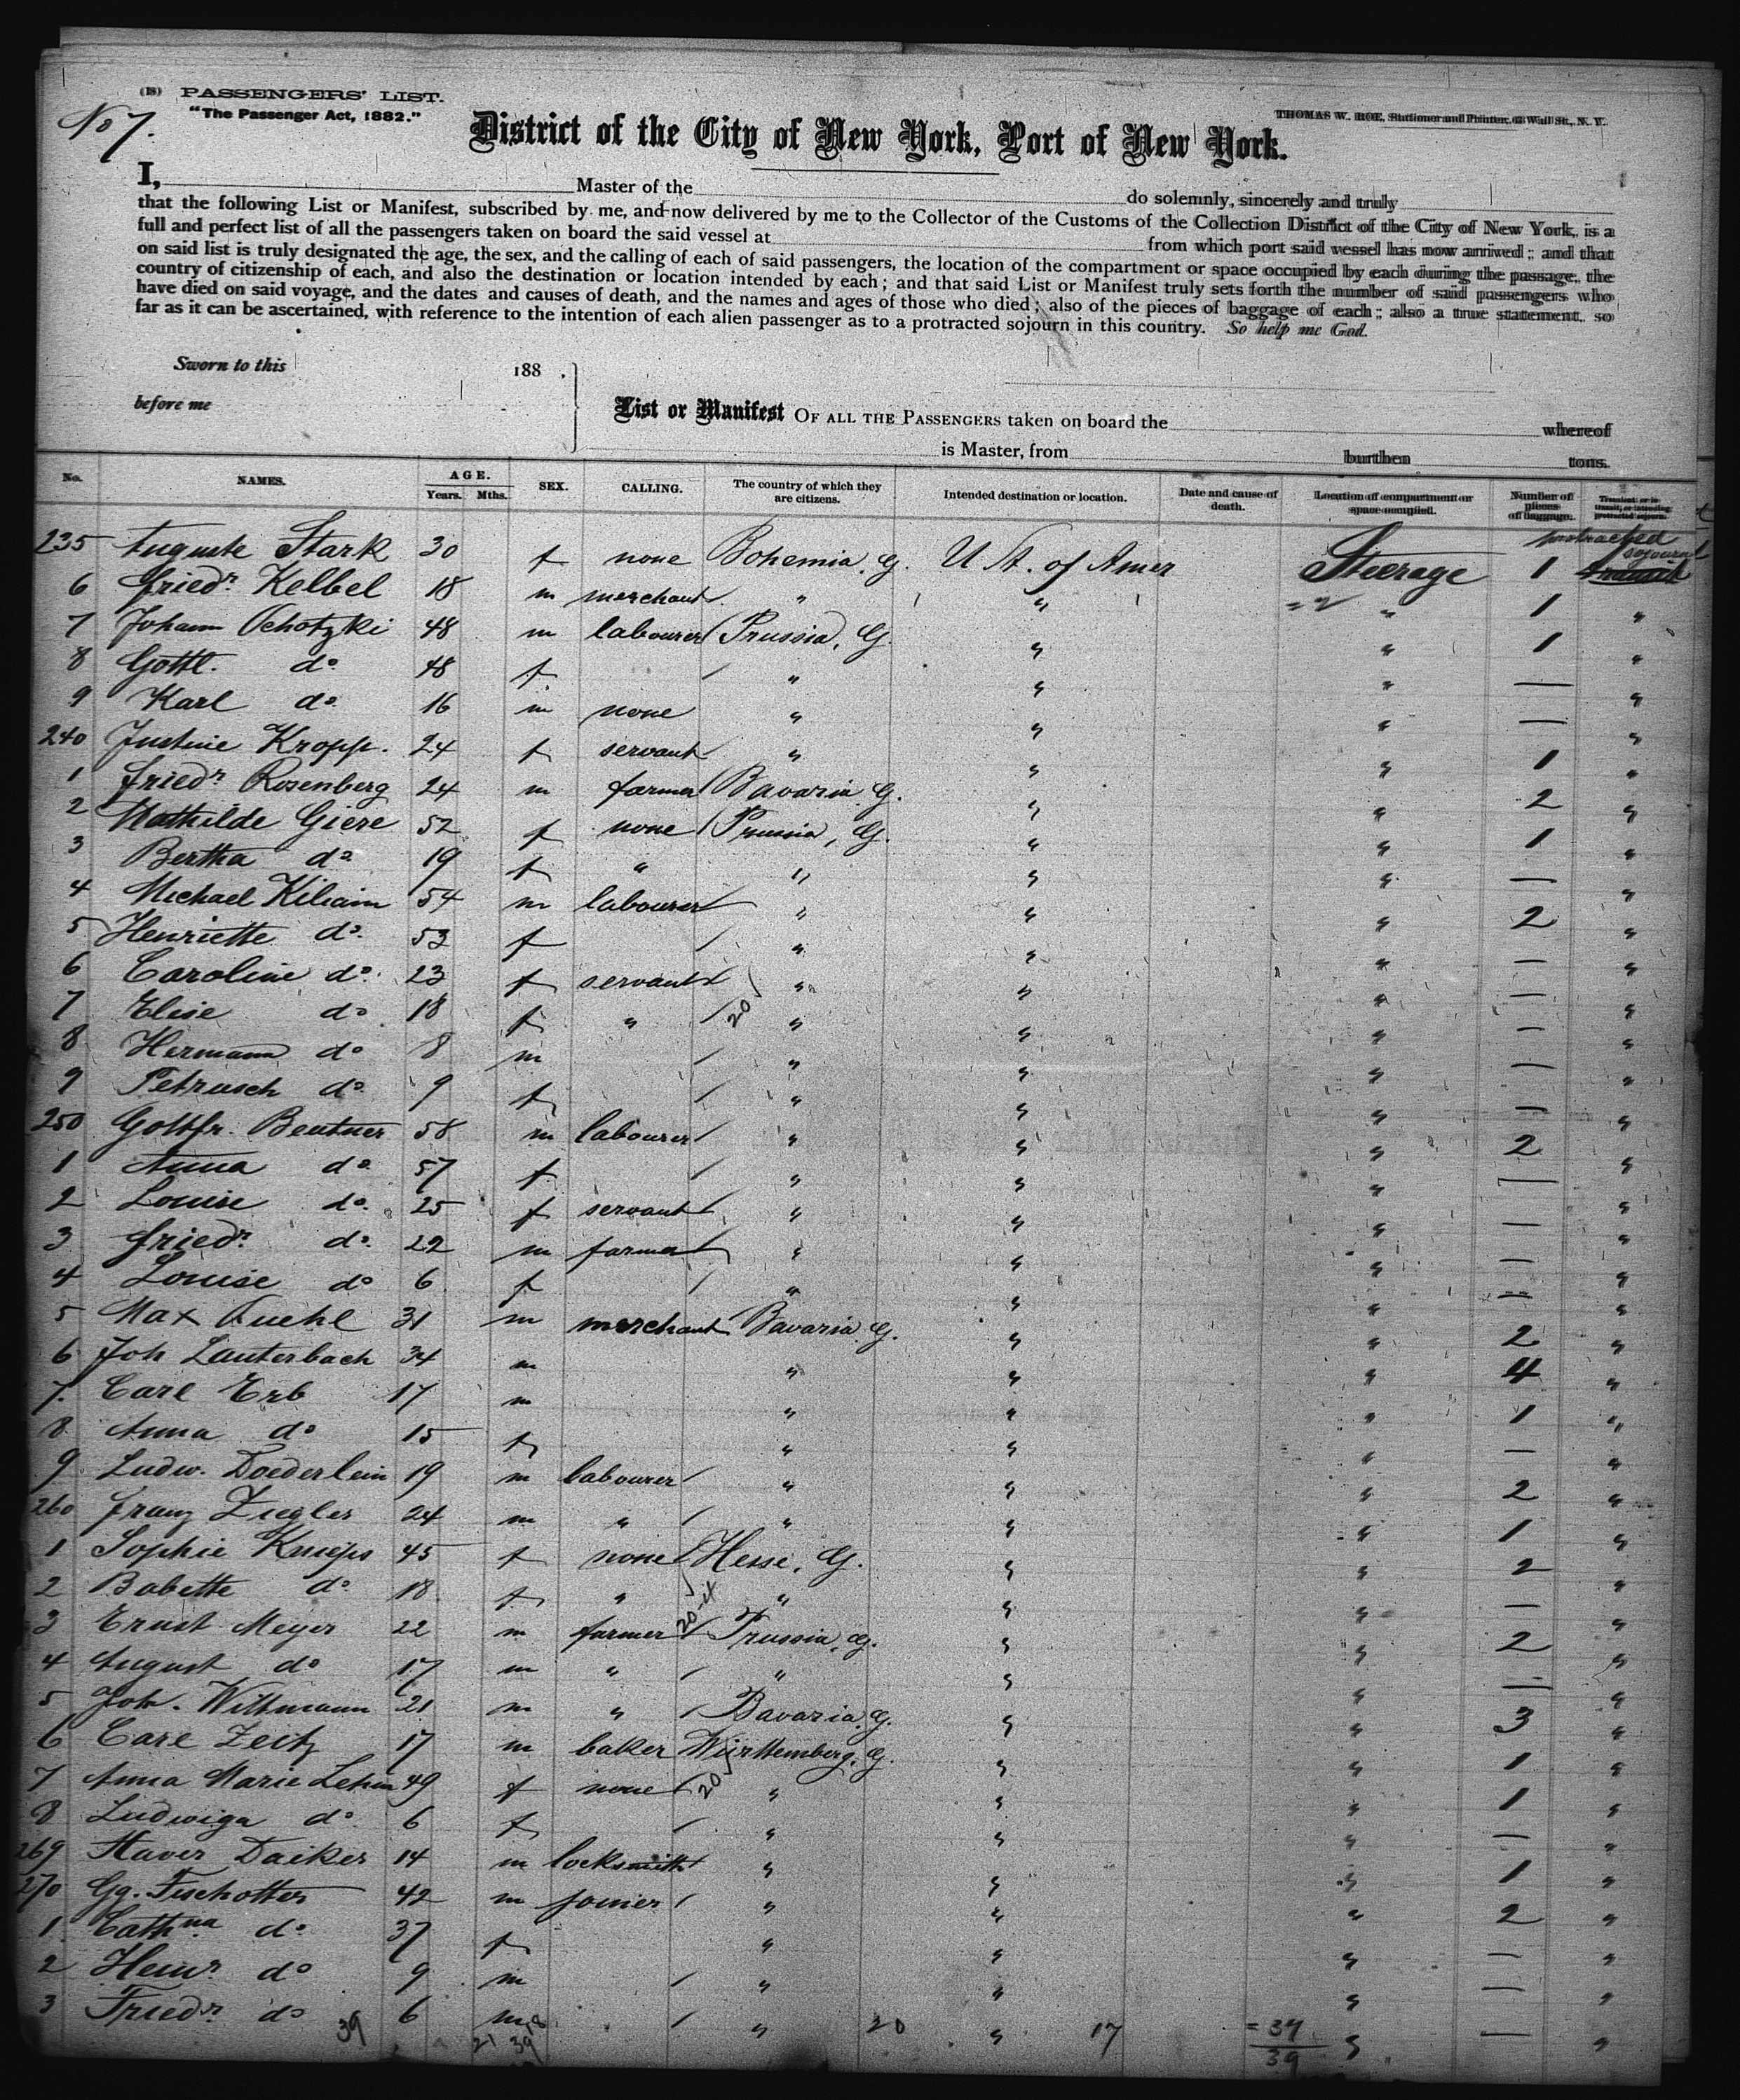 (18) PASSENGERS' LIST.
No 7.
"The Passenger Act, 1882."
THOMAS W. ROE, Stationer and Printer, 63 Wall St., N. Y.
District of the City of New York, Port of New York.
I, Master of the do solemnly, sincerely and truly
that the following List or Manifest, subscribed by me, and now delivered by me to the Collector of the Customs of the Collection District of the City of New York, is a
full and perfect list of all the passengers taken on board the said vessel at from which port said vessel has now arrived; and that
on said list is truly designated the age, the sex, and the calling of each of said passengers, the location of the compartment or space occupied by each during the passage, the
country of citizenship of each, and also the destination or location intended by each; and that said List or Manifest truly sets forth the number of said passengers who
have died on said voyage, and the dates and causes of death, and the names and ages of those who died; also of the pieces of baggage of each; also a true statement, so
far as it can be ascertained, with reference to the intention of each alien passenger as to a protracted sojourn in this country. So help me God.
Sworn to this 188 .
before me
List or Manifest OF ALL THE PASSENGERS taken on board the whereof
is Master, from burthen tons.
No. NAMES. AGE. Years. Mths. SEX. CALLING. The country of which they are citizens. Intended destination or location. Date and cause of death. Location of compartment or space occupied. Number of pieces of baggage. Transient or in transit, or intending protracted sojourn.
protracted sojourn
235 Auguste Stark 30 f none Bohemia. G. U St. of Amer Steerage 1 transit
6 Friedr. Kelbel 18 m merchant " " " 1 "
7 Johann Ochotzki 48 m labourer Prussia, G. " " 1 "
8 Gottl. do 48 f " " " — "
9 Karl do 16 m none " " " — "
240 Justine Kropp. 24 f servant " " " 1 "
1 Friedr. Rosenberg 24 m farmer Bavaria G. " " 2 "
2 Mathilde Giere 52 f none Prussia, G. " " 1 "
3 Bertha do 19 f " " " " — "
4 Michael Kiliam 54 m labourer " " " 2 "
5 Henriette do. 53 f " " " — "
6 Caroline do. 23 f servant " " " — "
7 Elise do 18 f " 20 " " " — "
8 Hermann do 8 m " " " — "
9 Petrusch do 9 f " " " — "
250 Gottfr. Beutner 58 m labourer " " " 2 "
1 Anna do 57 f " " " — "
2 Louise do. 25 f servant " " " — "
3 Friedr. do. 22 m farmer " " " — "
4 Louise do 6 f " " " — "
5 Max Kuehl 31 m merchant Bavaria G. " " 2 "
6 Joh Lauterbach 34 m " " " 4 "
7. Carl Erb 17 m " " " 1 "
8 Anna do 15 f " " " — "
9 Ludw. Doederlein 19 m labourer " " " 2 "
260 Franz Zugler 24 m " " " " 1 "
1 Sophie Knieps 45 f none Hesse, G. " " 2 "
2 Babette do 18 f " " " " — "
3 Ernst Meyer 22 m farmer 20 Prussia, G. " " 2 "
4 August do 17 m " " " " — "
5 Joh. Wittmann 21 m " Bavaria, G. " " 3 "
6 Carl Zeitz 17 m baker Württemberg. G. " " 1 "
7 Anna Marie Lehm 49 f none 20 " " " 1 "
8 Ludwiga do 6 f " " " — "
269 Xaver Daiker 14 m locksmith " " " 1 "
270 Gg. Fischotter 42 m joiner " " " 2 "
1 Cathna do. 37 f " " " — "
2 Heinr. do 9 m " " " — "
3 Friedr. do 6 m " " " — "
39 21 18 39 20 17 = 37
39